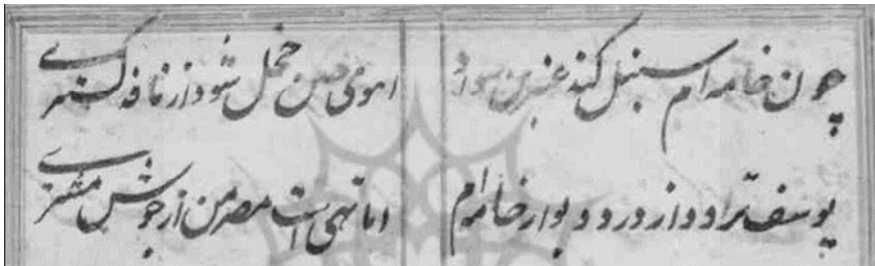 چون خامه ام سنبل کند عنبرین سواد آهوی چین خجل شود از نافه گستری
یوسف تراود از در و دیوار خامه ام اما تهی است مصر من از جوش مشتری